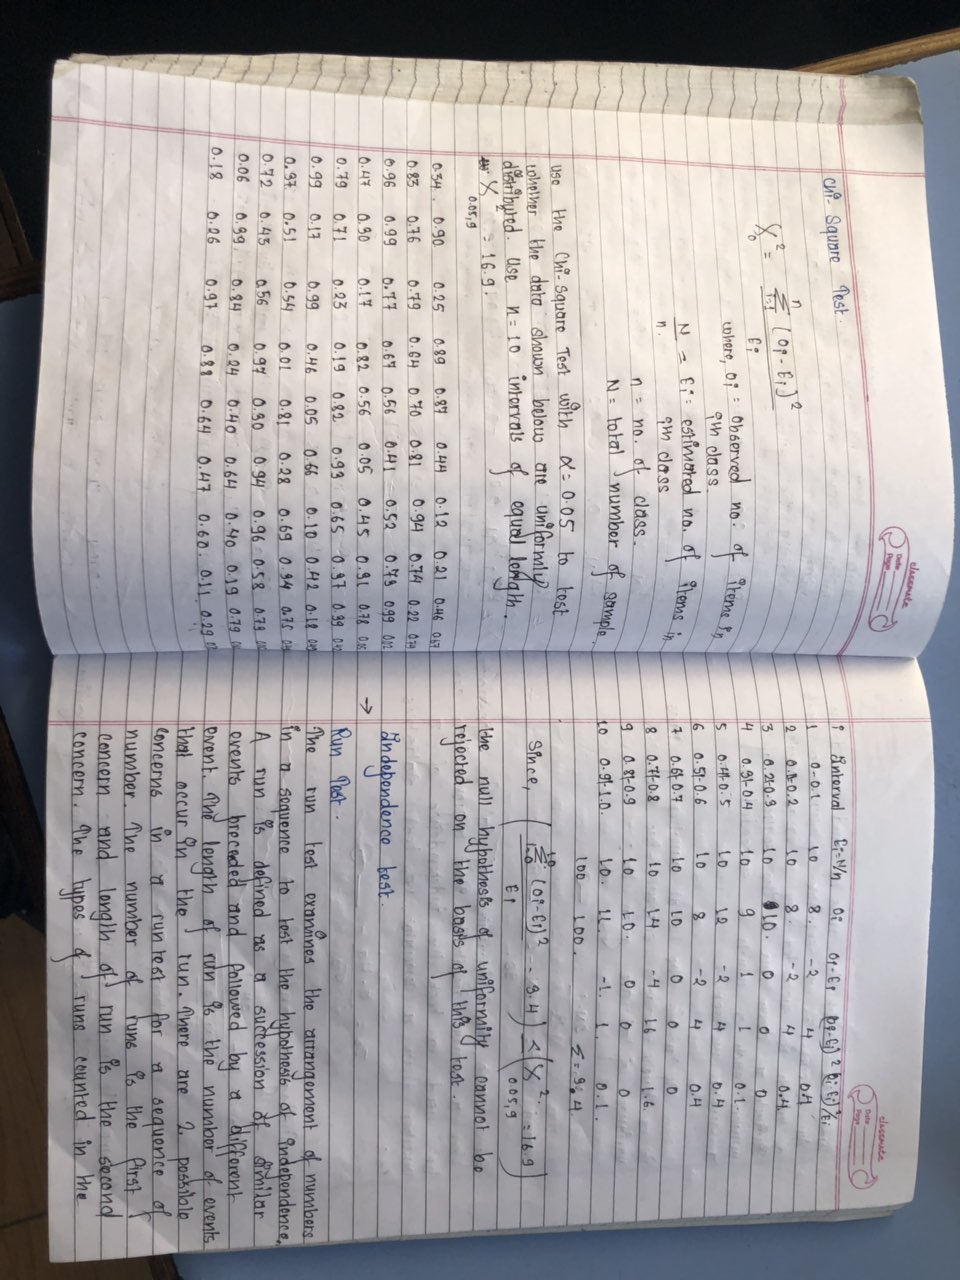 classmate
Date
Page
Chi-Square Test.
X₀² = Σ (Oi - Ei)²
n
i=1
Ei
where, Oi = observed no. of items in
ith class.
N = Ei = estimated no. of items in
n. ith class
n = no. of class.
N = total number of sample.
Use the Chi-Square Test with α = 0.05 to test
whether the data shown below are uniformly
distributed. Use n = 10 intervals of equal length.
X² = 16.9.
0.05,9
0.34. 0.90 0.25 0.89 0.87 0.44 0.12 0.21 0.46 0.67
0.83 0.76 0.79 0.64 0.70 0.81 0.94 0.74 0.22 0.74
0.96 0.99 0.77 0.67 0.56 0.41 0.52 0.73 0.99 0.02
0.47 0.90 0.17 0.82 0.56 0.05 0.45 0.91 0.78
0.79 0.71 0.23 0.19 0.82 0.93 0.65 0.97 0.99
0.99 0.17 0.99 0.46 0.05 0.66 0.10 0.42 0.18
0.97 0.51 0.54 0.01 0.81 0.28 0.69 0.94 0.75
0.72 0.43 0.56 0.97 0.90 0.94 0.96 0.58 0.79
0.06 0.99 0.84 0.24 0.40 0.64 0.40 0.19 0.79
0.18 0.26 0.97 0.88 0.64 0.47 0.60. 0.11. 0.29
classmate
Date
Page
i Interval Ei=N/n Oi Oi-Ei (Oi-Ei)² (Oi-Ei)²/Ei
1 0-0.1 10 8. -2 4 0.4
2 0.1-0.2 10 8. -2 4 0.4
3 0.21-0.3 10 10. 0 0 0
4 0.31-0.4 10 9 1 1 0.1.
5 0.41-0.5 10 12 -2 4 0.4
6 0.51-0.6 10 8 -2 4 0.4
7 0.61-0.7 10 10 0 0 0
8 0.71-0.8 10 14 -4 16 1.6
9 0.81-0.9 10 10. 0 0 0
10 0.91-1.0. 10. 11 -1. 1. 0.1.
100 100. Σ = 3.4
Since, ( Σ (Oi-Ei)² = 3.4 ) < ( X² = 16.9 )
Ei 0.05,9
the null hypothesis of uniformity cannot be
rejected on the basis of this test.
→ Independence test.
Run Test.
The run test examines the arrangement of numbers
in a sequence to test the hypothesis of independence.
A run is defined as a succession of similar
events preceded and followed by a different
event. The length of run is the number of events
that occur in the run. There are 2 possible
concerns in a run test for a sequence of
number. The number of runs is the first
concern and length of run is the second
concern. The types of runs counted in the